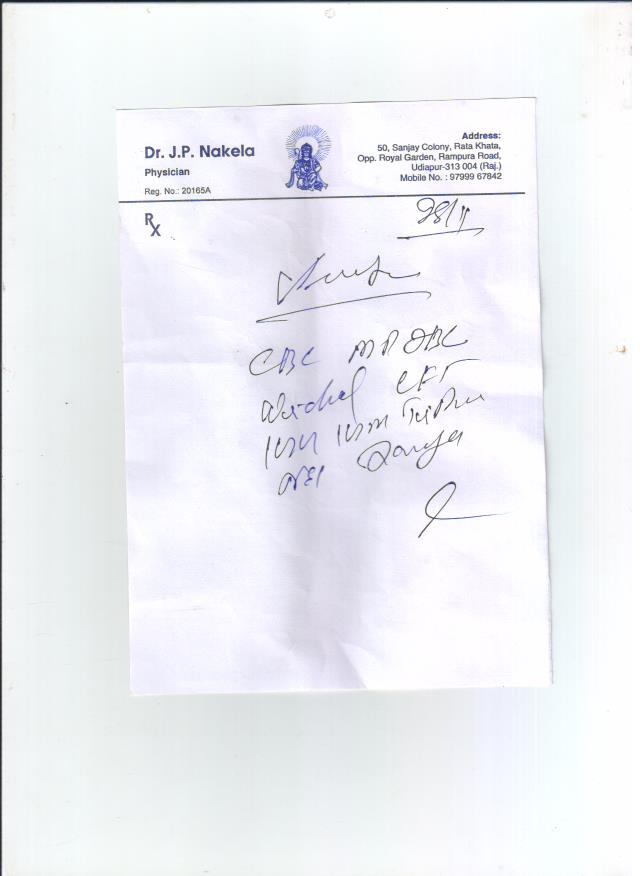 Dr. J.P. Nakela
Physician
Reg. No.: 20165A
Address:
50, Sanjay Colony, Rata Khata,
Opp. Royal Garden, Rampura Road,
Udiapur-313 004 (Raj.)
Mobile No. : 97999 67842
Rx
28/11
CBC MP
Widal LFT
NS1